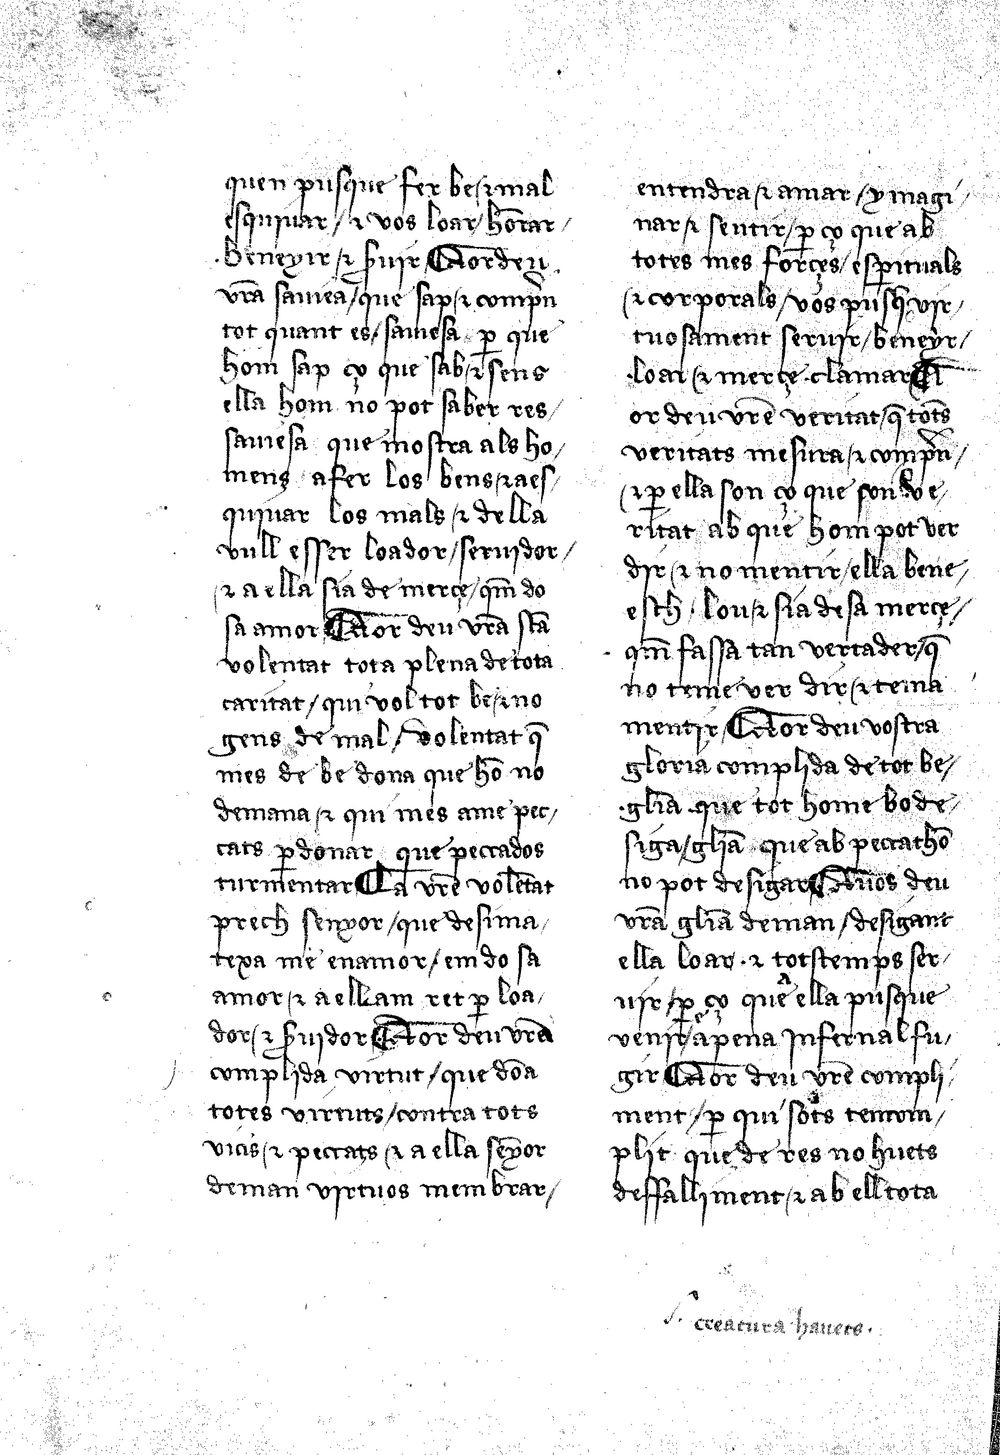 quen pusque fer be / ⁊ mal
esquiuar / ⁊ vos loar / hōrar /
beneyir / ⁊ ẜuir ¶ Sẽyor deu
vr̃a sauiea / que sap / ⁊ comp̃n
tot quant es / sauiesa ꝑ que
hom sap ço que sab / ⁊ sens
ella hom no pot saber res /
sauiesa que mostra als ho /
mens afer los bens / ⁊ aes /
quiuar los mals / ⁊ de lla
vull esser loador / seruidor /
⁊ a ella sia de merçe / qm̃ do
sa amor ¶ Sẽyor deu vr̃a sc̃a
volentat tota plena de tota
caritat / qui vol tot be / ⁊ no
gens de mal / volentat q̃
mes de be dona que hõ no
demana / ⁊ qui mes ame pec /
cats ꝑdonar que peccados
turmentar ¶ A vr̃e volẽtat
prech senyor / que desima /
texa me enamor / em do sa
amor / ⁊ a ellam ret ꝑ loa /
dor / ⁊ ẜuidor ¶ Sẽyor deu vr̃a
complida virtut / que dõa
totes virtuts / contra tots
vicis / ⁊ peccats / ⁊ a ella sẽyor
deman virtuos membrar /
entendra / ⁊ amar / ymagi /
nar / ⁊ sentir / ꝑ ço que ab
totes mes forçes / esp̃ituals
/ ⁊ corporals / vos pusq̃ vir /
tuosament seruir / beneyr /
loar / ⁊ merçe clamar ¶ Sẽy
or deu vr̃e veritat / q̃ tots
veritats mesura / ⁊ comp̃n /
/ ⁊ ꝑ ella son ço que son / ve /
ritat ab que hom pot ver
dir / ⁊ no mentir / ella bene /
esch / lou / ⁊ sia de sa merçe /
qm̃ fassa tan vertader / q̃
no teme ver dir / ⁊ tema
mentir ¶ Sẽyor deu vostra
gloria complida de tot be /
gl̃ia que tot home bo de /
siga / gl̃ia que ab peccat hõ
no pot desigar ¶ A vos deu
vr̃a gl̃ia deman / desigant
ella loar ⁊ totstemps ser /
uir / ꝑ ço que a ella pusque
venir / e a pena Infernal fu /
gir ¶ Sẽyor deu vr̃e compli /
ment / ꝑ qui sots tot com /
plit que de res no huets
deffalliment / ⁊ ab ell tota
creatura hauets.